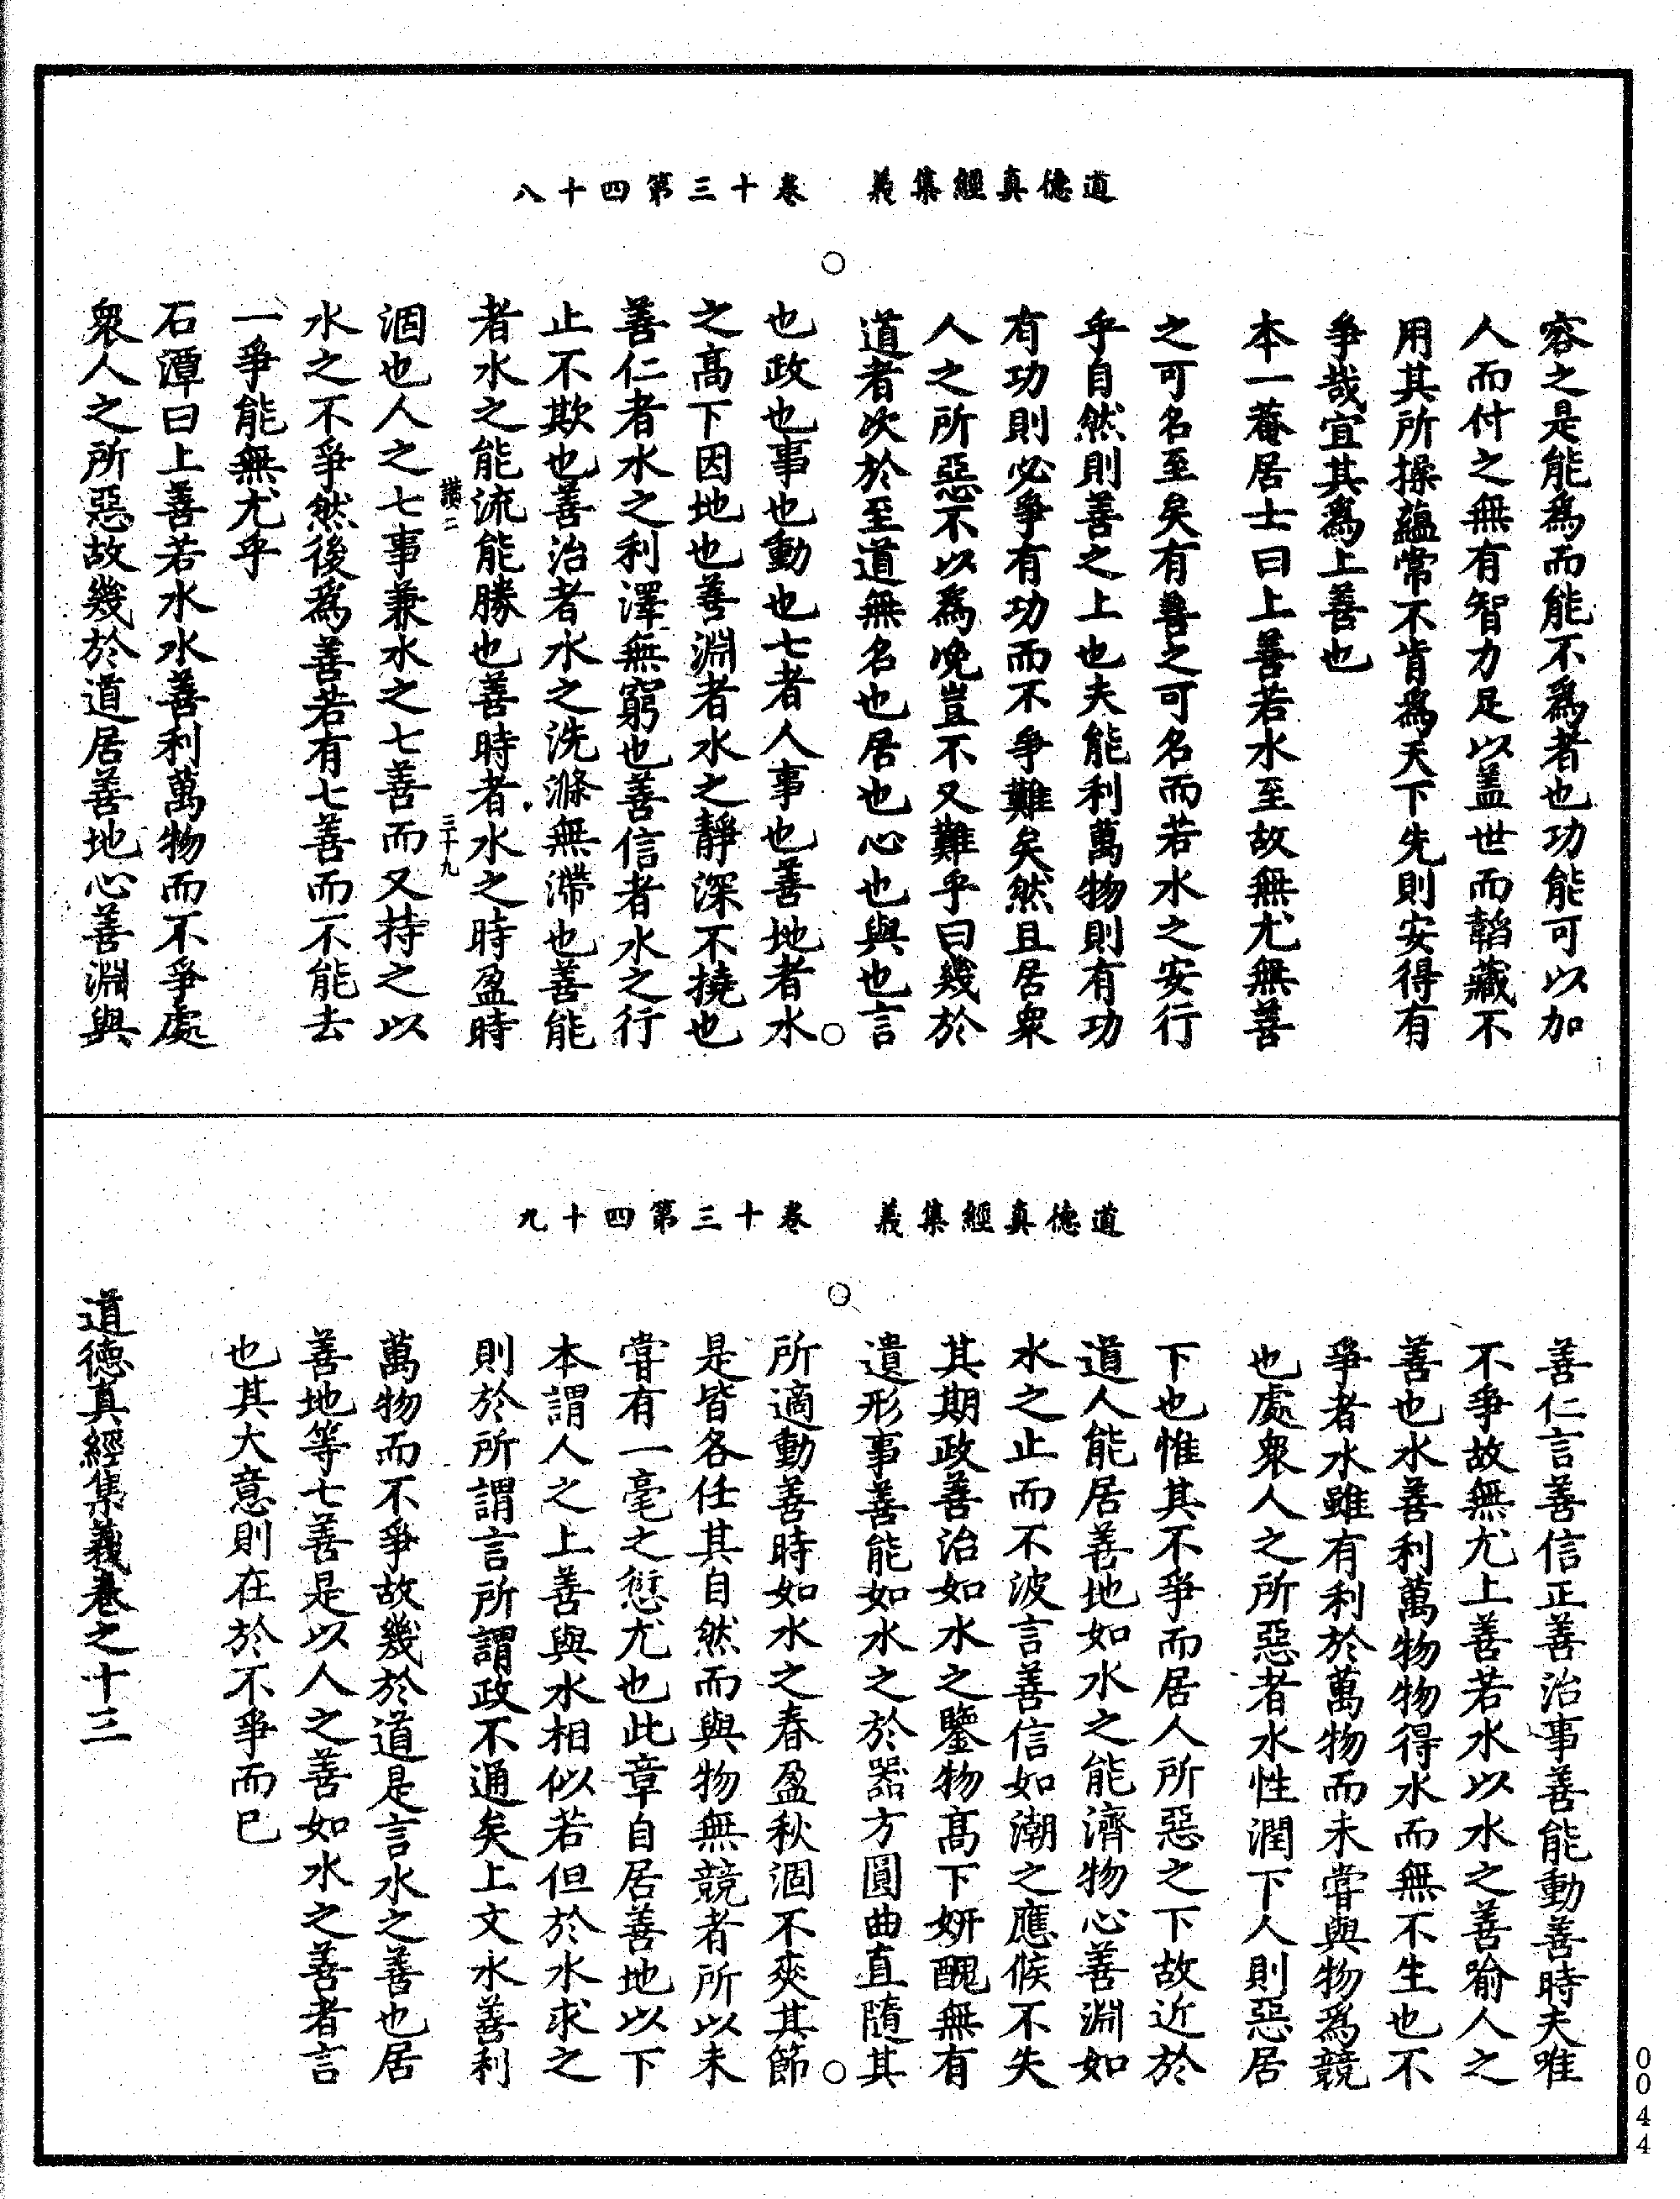 道德真經集義　卷十三第四十八
容之是能爲而能不爲者也功能可以加
人而付之無有智力足以蓋世而韜藏不
用其所操蘊常不肯爲天下先則安得有
爭哉宜其爲上善也
本一菴居士曰上善若水至故無尤無善
之可名至矣有善之可名而若水之安行
乎自然則善之上也夫能利萬物則有功
有功則必爭有功而不爭難矣然且居衆
人之所惡不以爲浼豈不又難乎曰幾於
道者次於至道無名也居也心也與也言
也政也事也動也七者人事也善地者水
之高下因地也善淵者水之靜深不撓也
善仁者水之利澤無窮也善信者水之行
止不欺也善治者水之洗滌無滯也善能
者水之能流能勝也善時者水之時盈時
讚二　三十九
涸也人之七事兼水之七善而又持之以
水之不爭然後爲善若有七善而不能去
一爭能無尤乎
石潭曰上善若水水善利萬物而不爭處
衆人之所惡故幾於道居善地心善淵與
道德真經集義　卷十三第四十九
善仁言善信正善治事善能動善時夫唯
不爭故無尤上善若水以水之善喻人之
善也水善利萬物物得水而無不生也不
爭者水雖有利於萬物而未嘗與物爲競
也處衆人之所惡者水性潤下人則惡居
下也惟其不爭而居人所惡之下故近於
道人能居善地如水之能濟物心善淵如
水之止而不波言善信如潮之應候不失
其期政善治如水之鑒物高下妍醜無有
遺形事善能如水之於器方圓曲直隨其
所適動善時如水之春盈秋涸不爽其節
是皆各任其自然而與物無競者所以未
嘗有一毫之愆尤也此章自居善地以下
本謂人之上善與水相似若但於水求之
則於所謂言所謂政不通矣上文水善利
萬物而不爭故幾於道是言水之善也居
善地等七善是以人之善如水之善者言
也其大意則在於不爭而已
道德真經集義卷之十三
0044